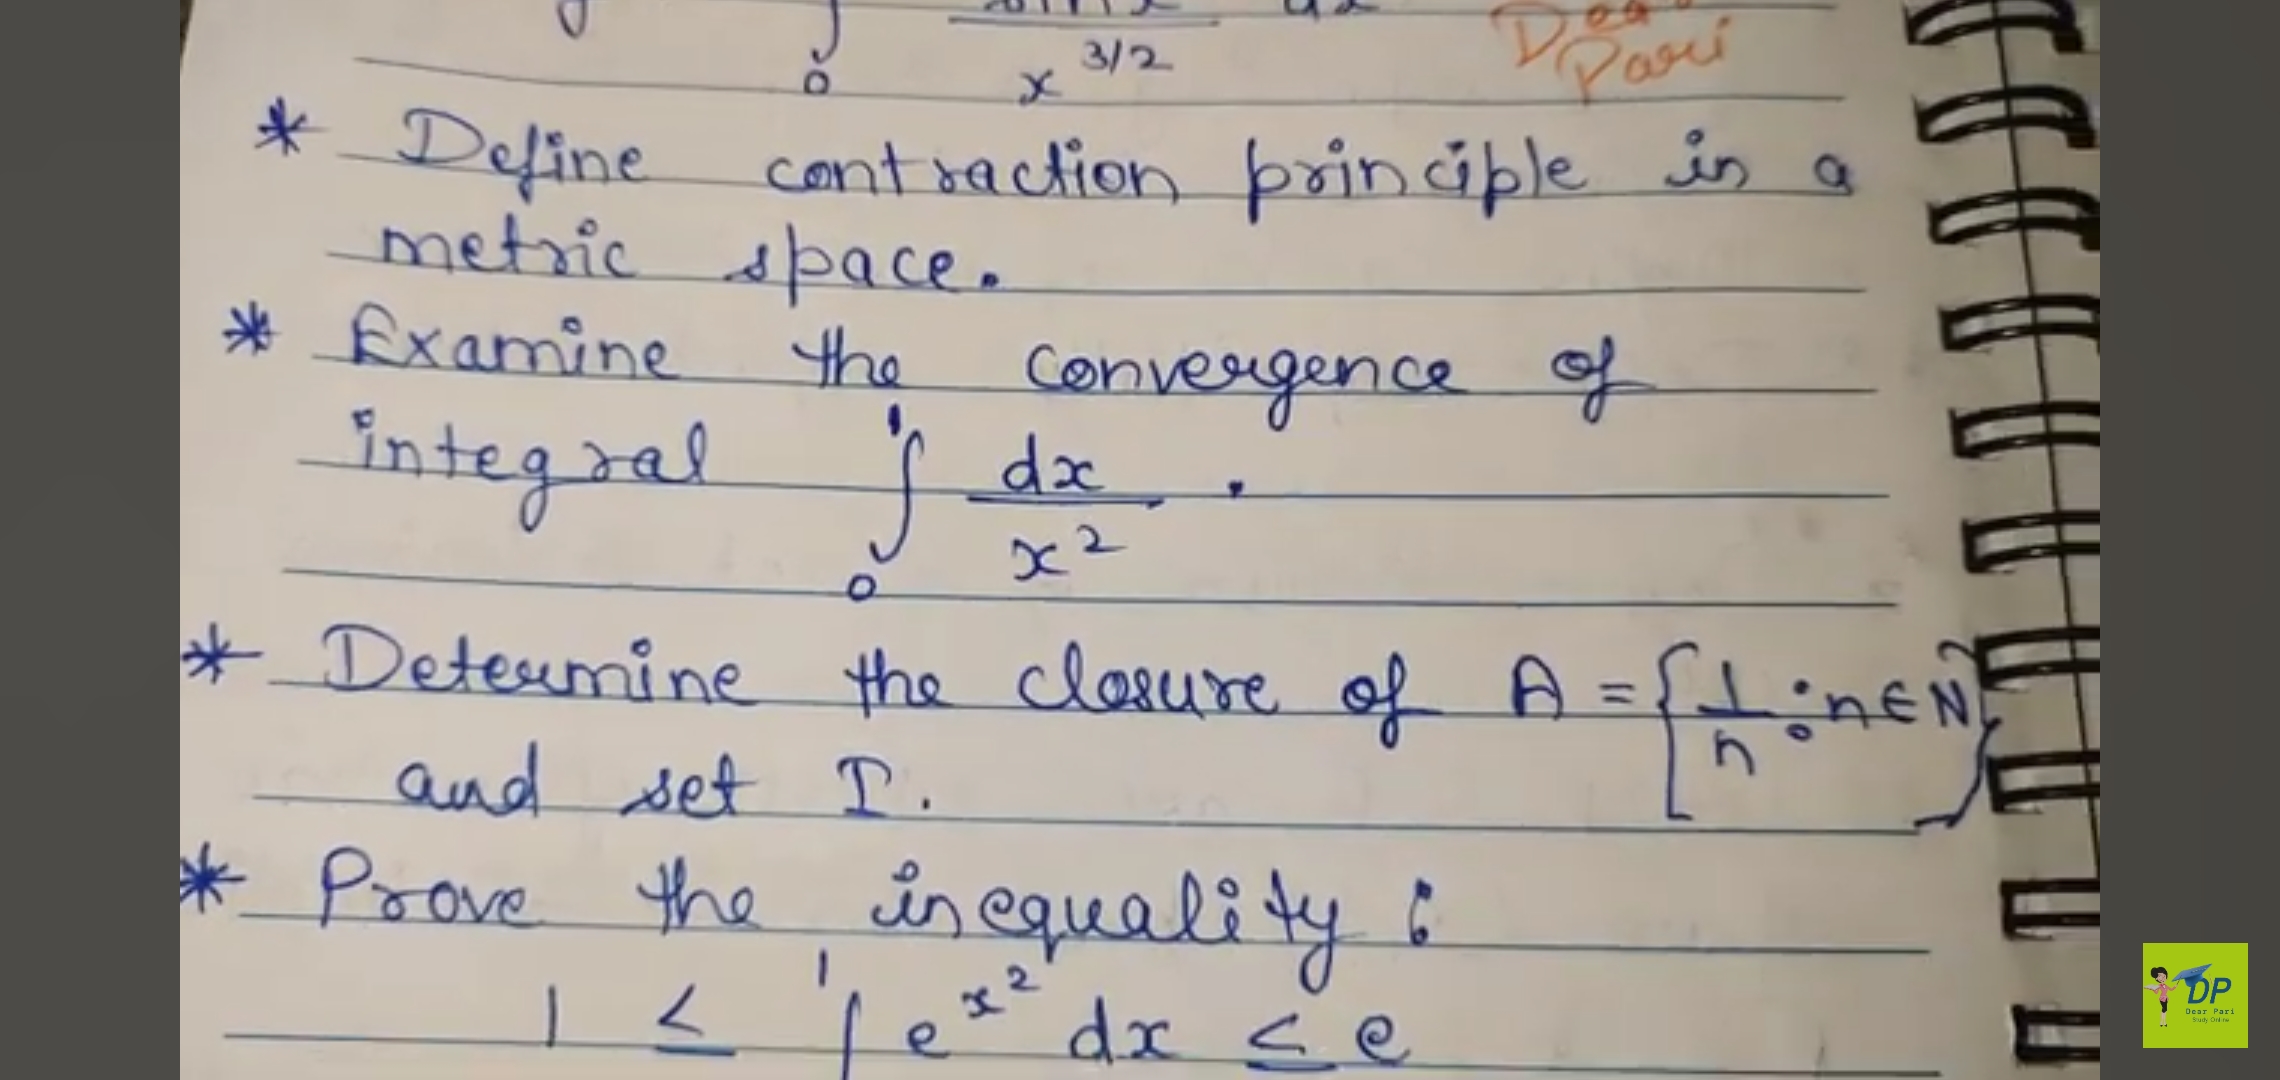 ∫₀ sin x / x^3/2 dx
Dear
Pari
* Define contraction principle in a
metric space.
* Examine the convergence of
integral ∫₀¹ dx/x² .
* Determine the closure of A = {1/n : n ∈ N}
and set I.
* Prove the inequality :
1 ≤ ∫¹ e^x² dx ≤ e
DP
Dear Pari
Study Online